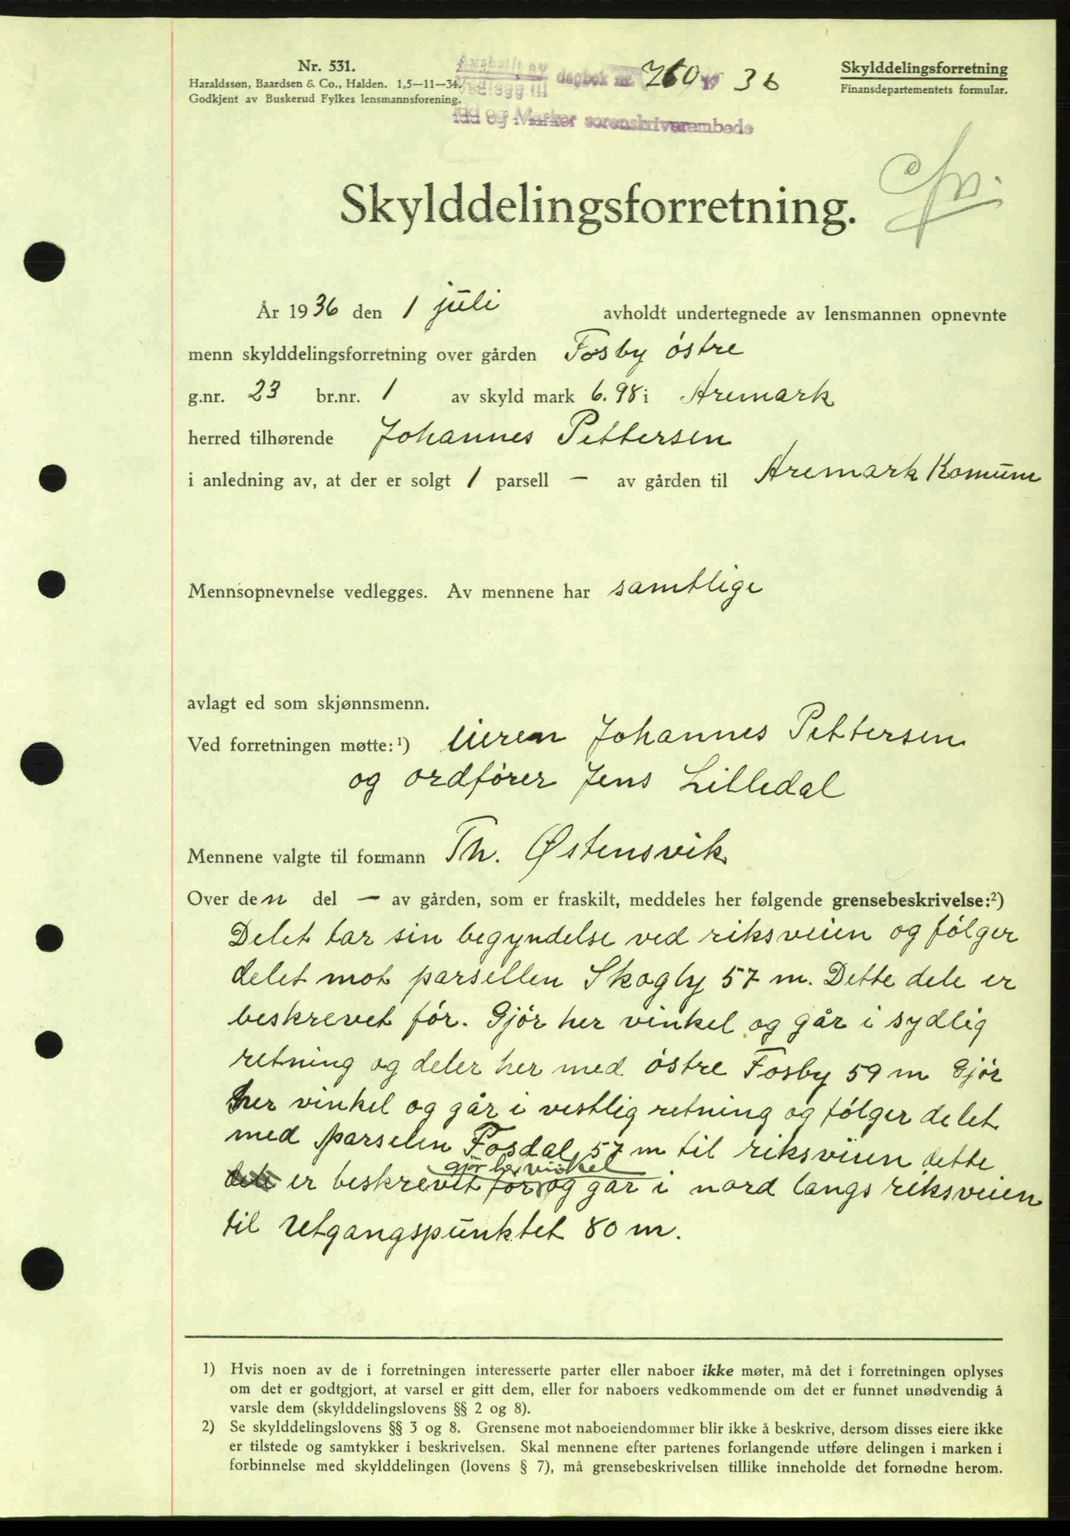 Nr. 531.
Haraldssøn, Baardsen & Co., Halden. 1,5—11—34.
Godkjent av Buskerud Fylkes lensmannsforening.
Avskrift av
Vedlegg til dagbok nr. 760 1936
Idd og Marker sorenskriverembede
Skylddelingsforretning
Finansdepartementets formular.
Skylddelingsforretning.
År 1936 den 1 juli avholdt undertegnede av lensmannen opnevnte
menn skylddelingsforretning over gården Fosby østre
g.nr. 23 br.nr. 1 av skyld mark 6.98 i Aremark
herred tilhørende Johannes Pettersen
i anledning av, at der er solgt 1 parsell — av gården til Aremark Komune
Mennsopnevnelse vedlegges. Av mennene har samtlige
avlagt ed som skjønnsmenn.
Ved forretningen møtte:¹) eieren Johannes Pettersen
og ordfører Jens Lilledal
Mennene valgte til formann Th. Østensvik
Over den del — av gården, som er fraskilt, meddeles her følgende grensebeskrivelse:²)
Delet tar sin begyndelse ved riksveien og følger
delet mot parsellen Skogly 57 m. Dette dele er
beskrevet før. Gjør her vinkel og går i sydlig
retning og deler her med østre Fosby 59 m Gjør
her vinkel og går i vestlig retning og følger delet
med parselen Fosdal 57 m til riksveien dette
gjør her vinkel
dele er beskrevet før og går i nord langs riksveien
til Utgangspunktet 80 m.
1) Hvis noen av de i forretningen interesserte parter eller naboer ikke møter, må det i forretningen oplyses
om det er godtgjort, at varsel er gitt dem, eller for naboers vedkommende om det er funnet unødvendig å
varsle dem (skylddelingslovens §§ 2 og 8).
2) Se skylddelingslovens §§ 3 og 8. Grensene mot naboeiendommer blir ikke å beskrive, dersom disses eiere ikke
er tilstede og samtykker i beskrivelsen. Skal mennene efter partenes forlangende utføre delingen i marken i
forbinnelse med skylddelingen (lovens § 7), må grensebeskrivelsen tillike inneholde det fornødne herom.